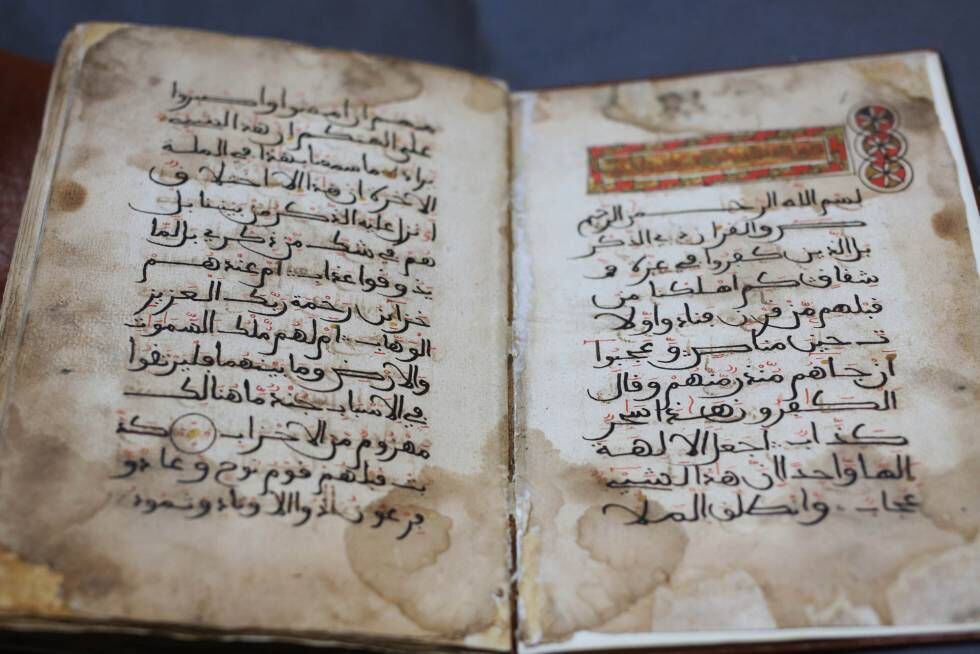 بسم الله الرحمن الرحيم
ص والقران ذي الذكر
بل الذين كفروا في عزة و
شقاق كم اهلكنا من
قبلهم من قرن فنادوا ولا
ت حين مناص وعجبوا
ان جاهم منذر منهم وقال
الكفرون هذا سحر
كذاب اجعل الالهة
الها واحدا ان هذا لشيء
عجاب وانطلق الملا
منهم ان امشوا واصبروا
على الهتكم ان هذا لشيء
يراد ما سمعنا بهذا في الملة
الاخرة ان هذا الا اختلاق
انزل عليه الذكر من بيننا بل
هم في شك من ذكري بل لما
يذوقوا عذاب ام عندهم
خزاين رحمة ربك العزيز
الوهاب ام لهم ملك السموت
والارض وما بينهما فليرتقوا
في الاسباب جند ما هنالك
مهزوم من الاحزاب كذ
بت قبلهم قوم نوح وعاد و
فرعون ذو الاوتاد وثمود